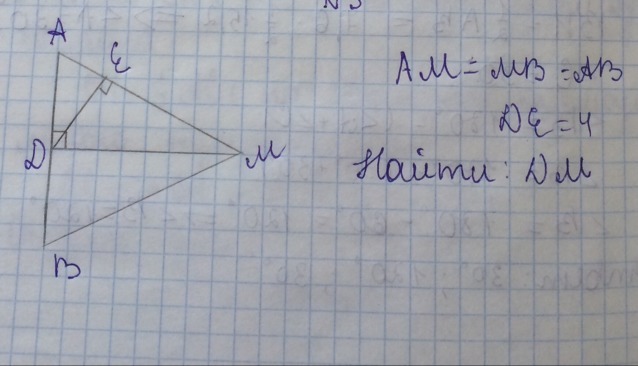 N 3
A
E
AM = MB = AB
DE = 4
D
M
Найти: DM
B